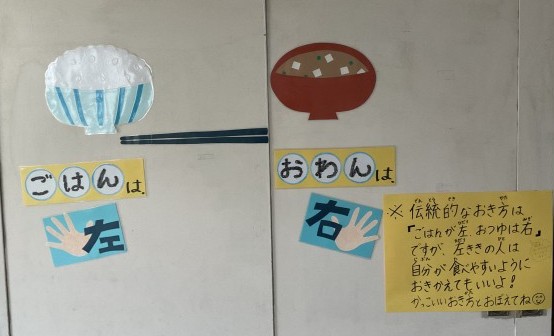 ごはんは、
左
おわんは、
右
※伝統的なおき方は
『ごはんが左、おつゆは右』
ですが、左ききの人は
自分が食べやすいように
おきかえてもいいよ！
かっこいいおき方とおぼえてね